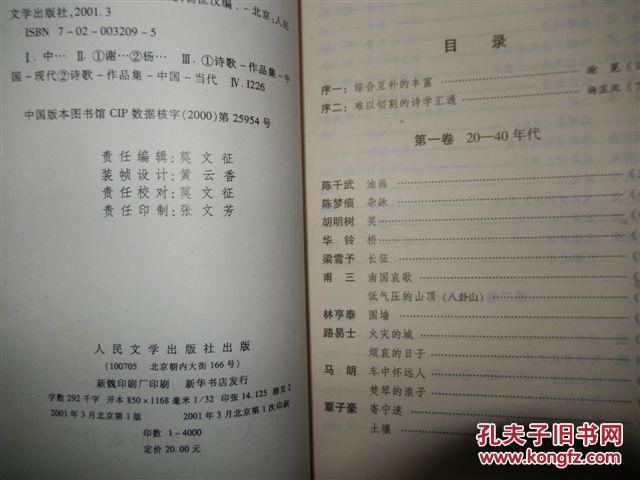 汉编．－北京：人民
文学出版社，2001.3
ISBN 7-02-003209-5
Ⅰ．中… Ⅱ．①谢…②杨… Ⅲ．①诗歌-作品集-中
国-现代②诗歌-作品集-中国-当代 Ⅳ．I226
中国版本图书馆CIP数据核字(2000)第25954号
责任编辑：莫文征
装帧设计：黄云香
责任校对：莫文征
责任印制：张文芳
人民文学出版社出版
(100705 北京朝内大街166号)
新魏印刷厂印刷 新华书店发行
字数292千字 开本850×1168毫米1/32 印张14.125 插页2
2001年3月北京第1版 2001年3月北京第1次印刷
印数1-4000
定价20.00元
目录
序一：综合互补的丰富 谢冕
序二：难以切割的诗学汇通 杨匡汉
第一卷 20—40年代
陈千武 油画
陈梦痕 杂詠
胡明树 笑
华铃 桥
梁雪予 长征
甫三 南国哀歌
低气压的山顶(八卦山)
林亨泰 围墙
路易士 火灾的城
烦哀的日子
马朗 车中怀远人
焚琴的浪子
覃子豪 寄宁速
土壤
孔夫子旧书网
www.kongfz.com